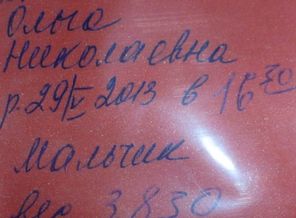 Ольга
Николаевна
р. 29/V 2013 в 16 30
Мальчик
вес 3830